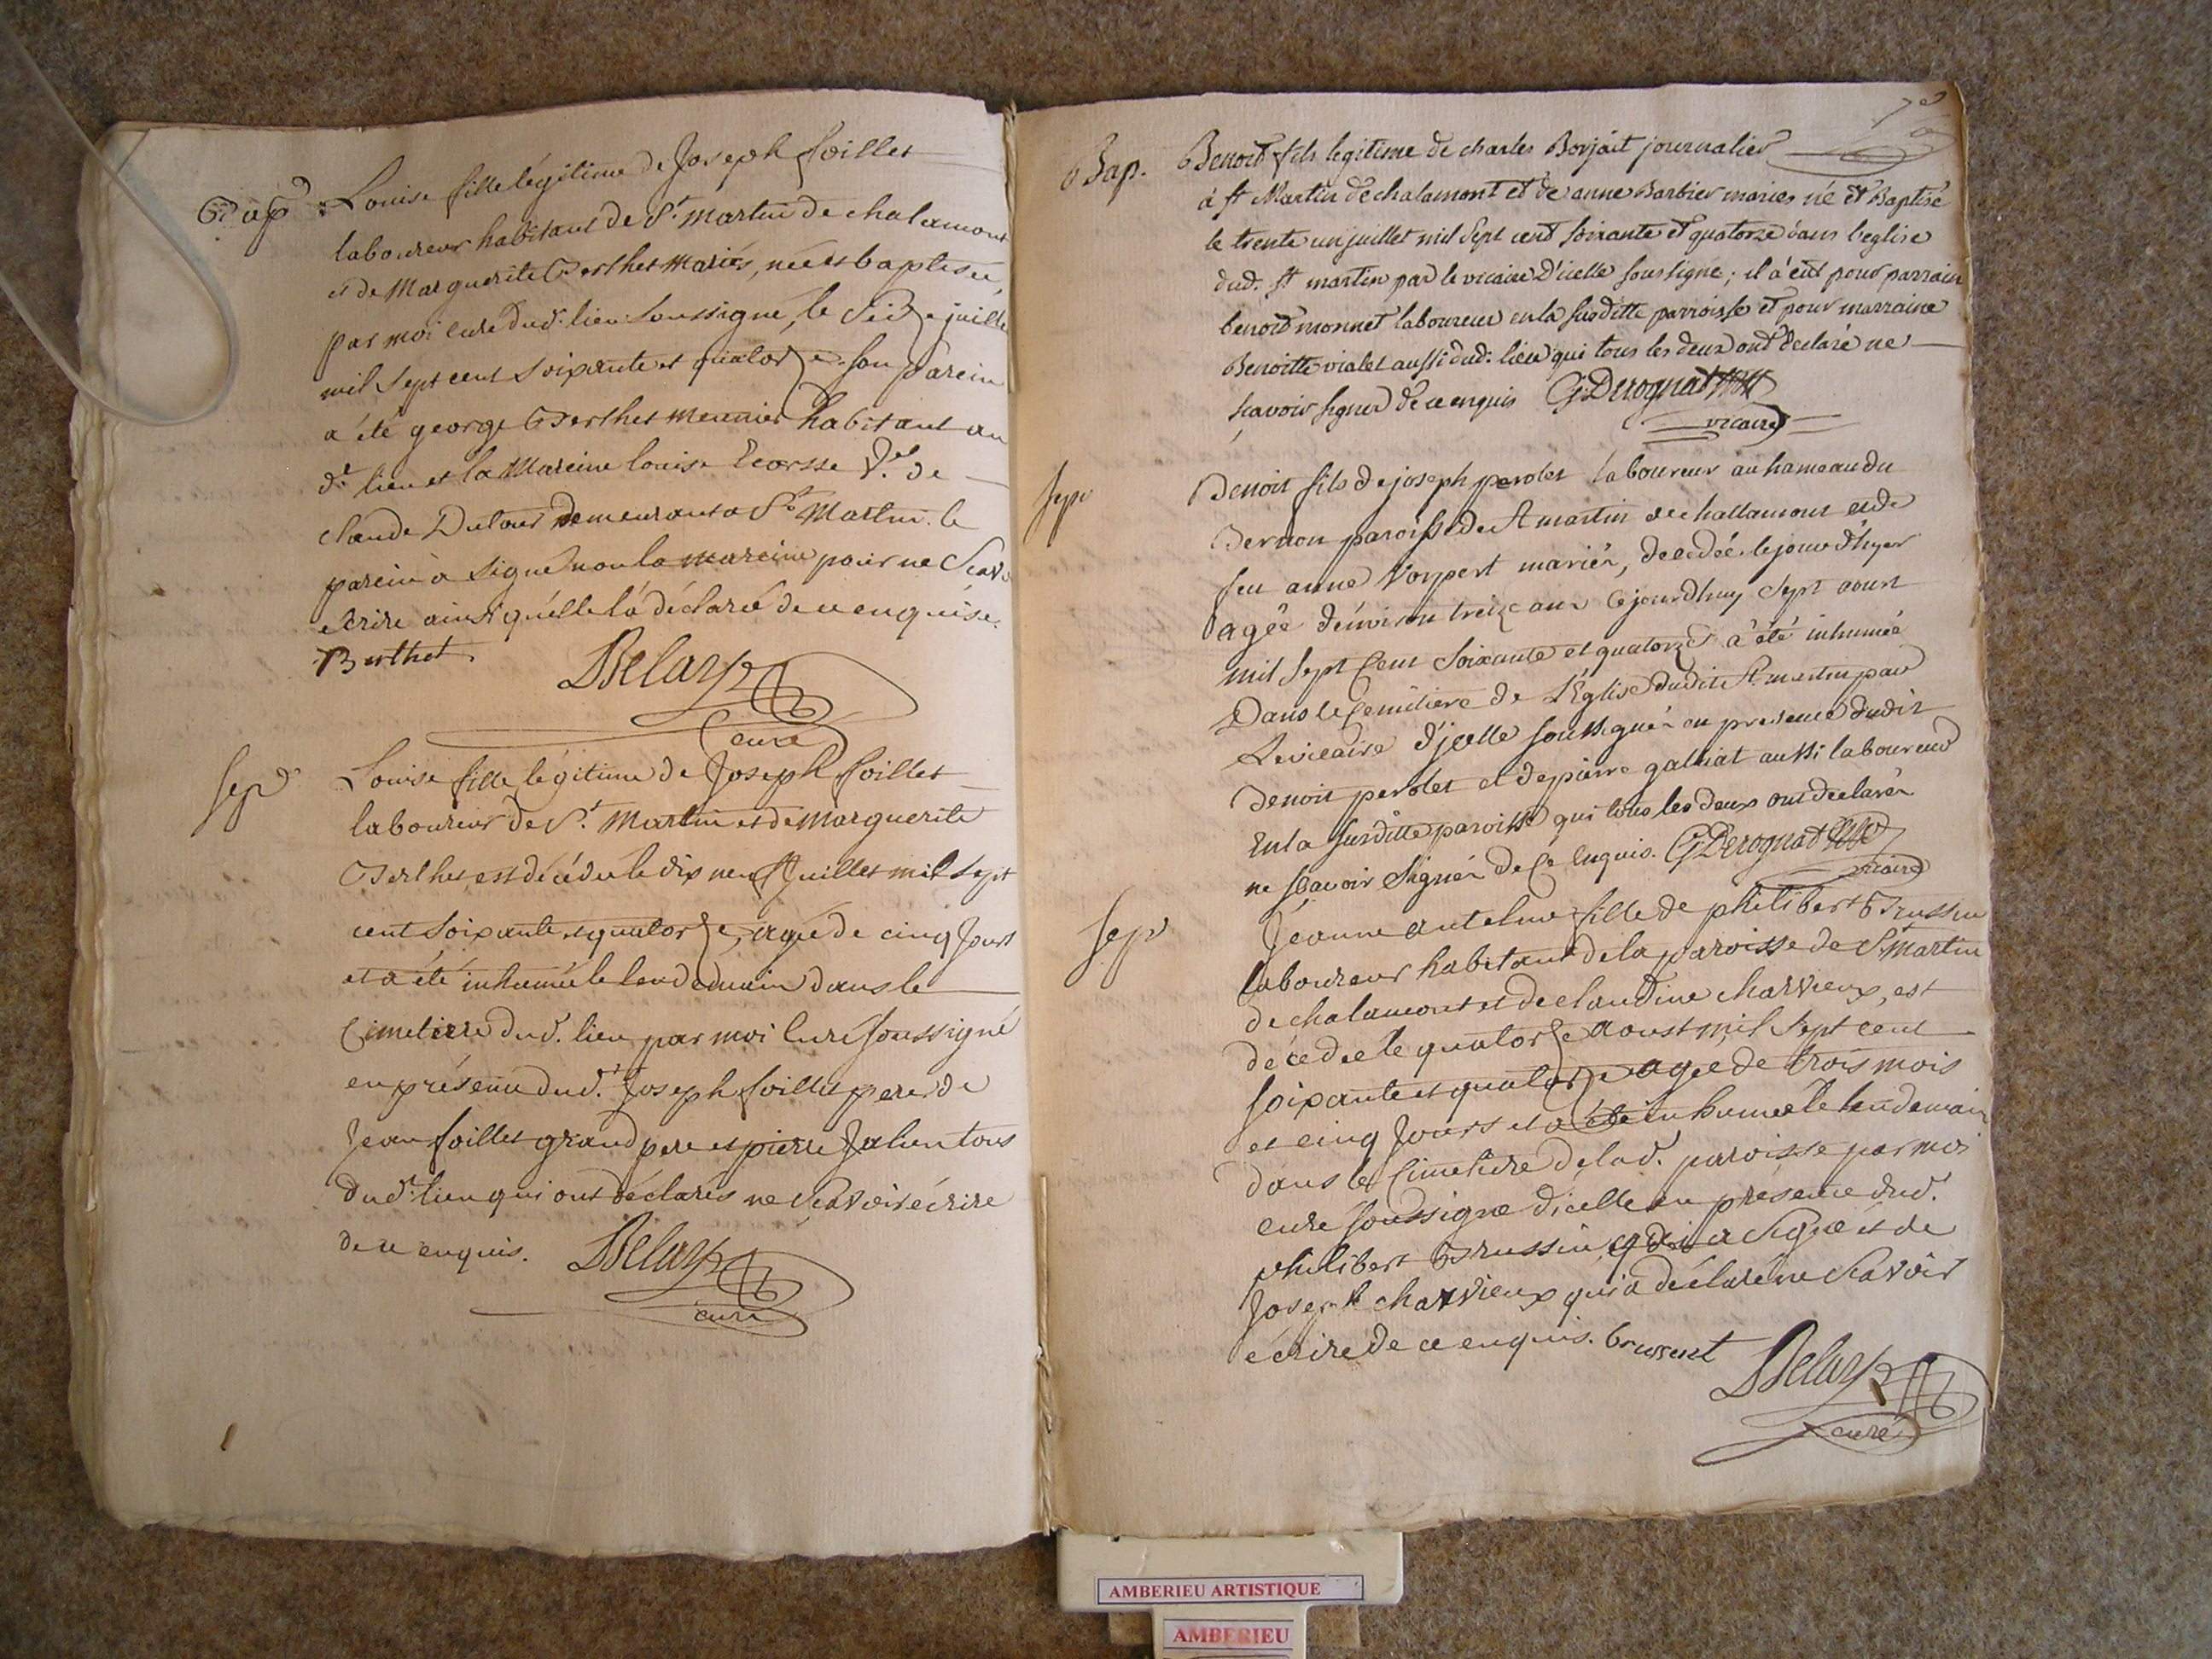 Bap. Louise fille légitime de Joseph foillet
laboureur habitant de St. Martin de chalamont
et de Marguerite Berthet Mariés, née et baptisée,
par moi curé dud. lieu soussigné, le seize juillet
mil sept cent soixante et quatorze. son parein
a été george Berthet Meunier habitant au
d. lieu et la Mareine louise Ecorsse Ve. de
claude Dutour demeurant a St. Martin. le
parein a signé non la mareine pour ne Scavoir
ecrire ainsi qu'elle l'a déclaré de ce enquise.
Berthet.
Delary
curé
sep. Louise fille légitime de Joseph foillet
laboureur de St. Martin et de Marguerite
Berthet, est décédée le dix neuf Juillet mil sept
cent soixante et quatorze, agée de cinq Jours
et a été inhumée le lendemain dans le
Cimetiere dud. lieu par moi Curé soussigné
en présence dud. Joseph foillet pere de
Jean foillet grand pere et pierre Jalien tous
dud. lieu qui ont déclarés ne Scavoir écrire
de ce enquis. Delary
curé
Bap. Benoit fils legitime de charles Borjait journalier
à st Martin de chalamont et de anne Barbier mariés né et Baptisé
le trente un juillet mil Sept cent soixante et quatorze dans l'eglise
dud. st martin par le vicaire D'icelle soussigné; il a eut pour parrain
benoit monnet laboureur en la susditte parroisse et pour marraine
Benoitte vialet aussi dud. lieu qui tous les deux ont declaré ne
scavoir signer de ce enquis G. Derognat
vicaire
sep. Benoit fils de joseph perolet laboureur au hameau du
Bernon paroisse de st martin de chatlamont et de
feu anne Voypert mariés, decedée le jour d'hyer
agée d'environ treize ans cejourdhuy sept aoust
mil sept Cent soixante et quatorze a été inhumée
Dans le Cemitiere de l'Eglise dudit st. martin par
Le vicaire d'jcelle soussigné en presence dudit
benoit perolet et de pierre galliat aussi laboureur
En la susditte paroisse qui tous les deux ont declarés
ne scavoir signer de Ce Enquis. G. Derognat
vicaire
sep. Jeanne antelme fille de philibert Brussin
laboureur habitant de la paroisse de St. Martin
de chalamont et de claudine charvieux, est
décedée le quatorze aoust mil sept cent
soixante et quatorze agée de trois mois
et cinq Jours et a été inhumée le lendemain
dans le Cimetiere de lad. paroisse par moi
curé soussigné d'icelle en présence dud.
philibert Brussin qui a signé et de
Joseph charvieux qui a déclaré ne Scavoir
écrire de ce enquis. brussent
Delary
curé
AMBERIEU ARTISTIQUE
AMBERIEU